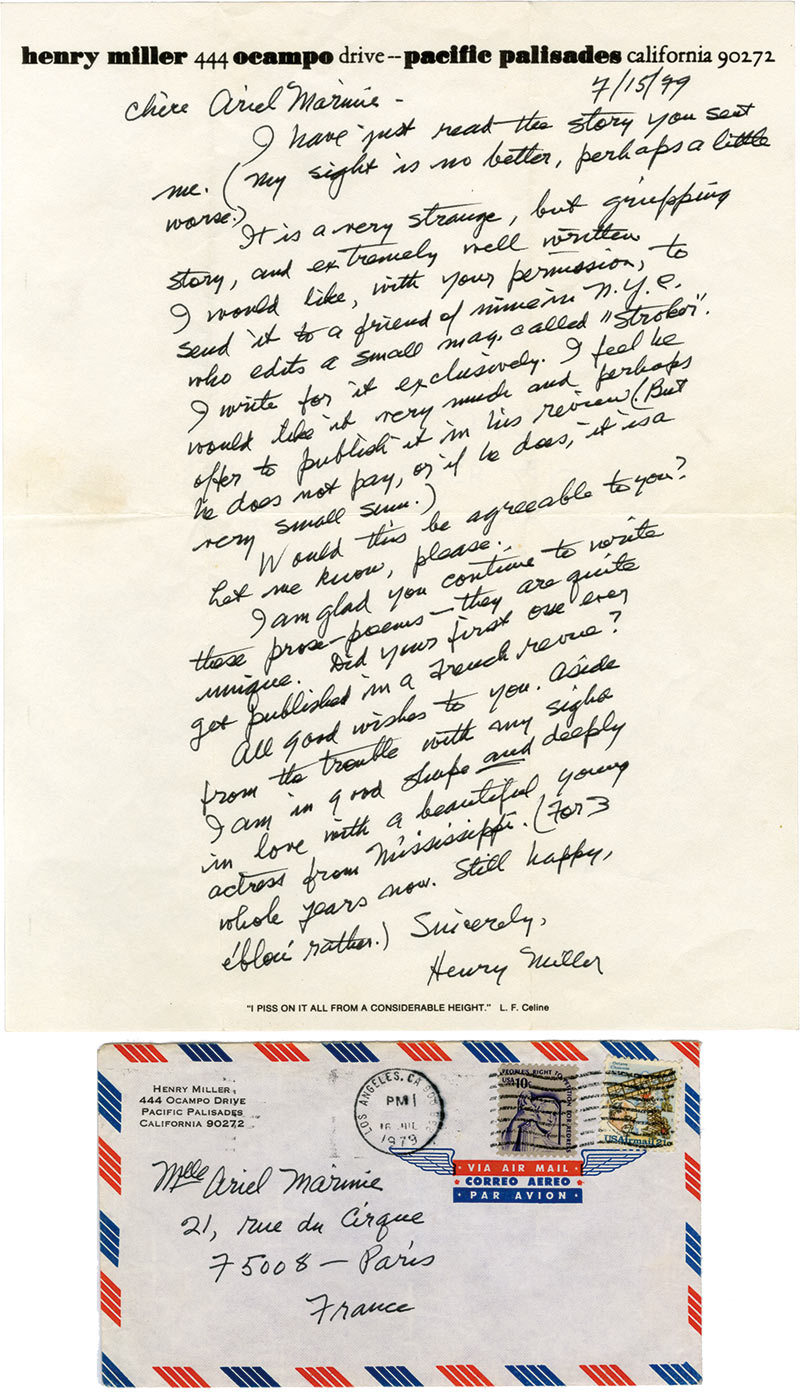 henry miller 444 ocampo drive -- pacific palisades california 90272
7/15/79
Chère Ariel Marinie -
I have just read the story you sent
me. (My sight is no better, perhaps a little
worse.)
It is a very strange, but gripping
story, and extremely well written
I would like, with your permission, to
send it to a friend of mine in N.Y.C.
who edits a small mag. called "Stroker".
I write for it exclusively. I feel he
would like it very much and perhaps
offer to publish it in his review. (But
he does not pay, or if he does, it is a
very small sum.)
Would this be agreeable to you?
Let me know, please.
I am glad you continue to write
these prose-poems — they are quite
unique. Did your first one ever
get published in a French revue?
All good wishes to you. Aside
from the trouble with my sight
I am in good shape and deeply
in love with a beautiful young
actress from Mississippi. (For 3
whole years now. Still happy,
ébloui rather.) Sincerely,
Henry Miller
"I PISS ON IT ALL FROM A CONSIDERABLE HEIGHT." L. F. Celine
HENRY MILLER
444 OCAMPO DRIVE
PACIFIC PALISADES
CALIFORNIA 90272
LOS ANGELES, CA
PM
16 JUL
1979
PEOPLE'S RIGHT TO PETITION FOR REDRESS
USA 10c
USAirmail 21c
VIA AIR MAIL
CORREO AEREO
PAR AVION
Mlle Ariel Marinie
21, rue du Cirque
75008 — Paris
France